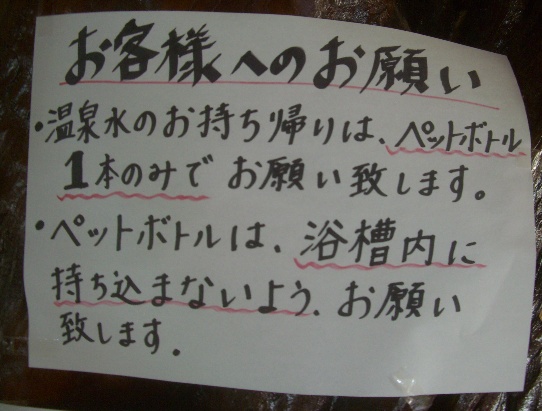 お客様へのお願い
・温泉水のお持ち帰りは、ペットボトル
1本のみでお願い致します。
・ペットボトルは、浴槽内に
持ち込まないよう、お願い
致します。